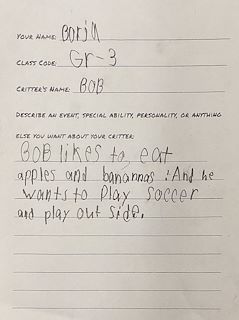 YOUR NAME: Borin
CLASS CODE: Gr-3
CRITTER'S NAME: BOB
DESCRIBE AN EVENT, SPECIAL ABILITY, PERSONALITY, OR ANYTHING
ELSE YOU WANT ABOUT YOUR CRITTER:
BOB likes to, eat
apples and banannas . And he
wants to Play soccer
and play out side.